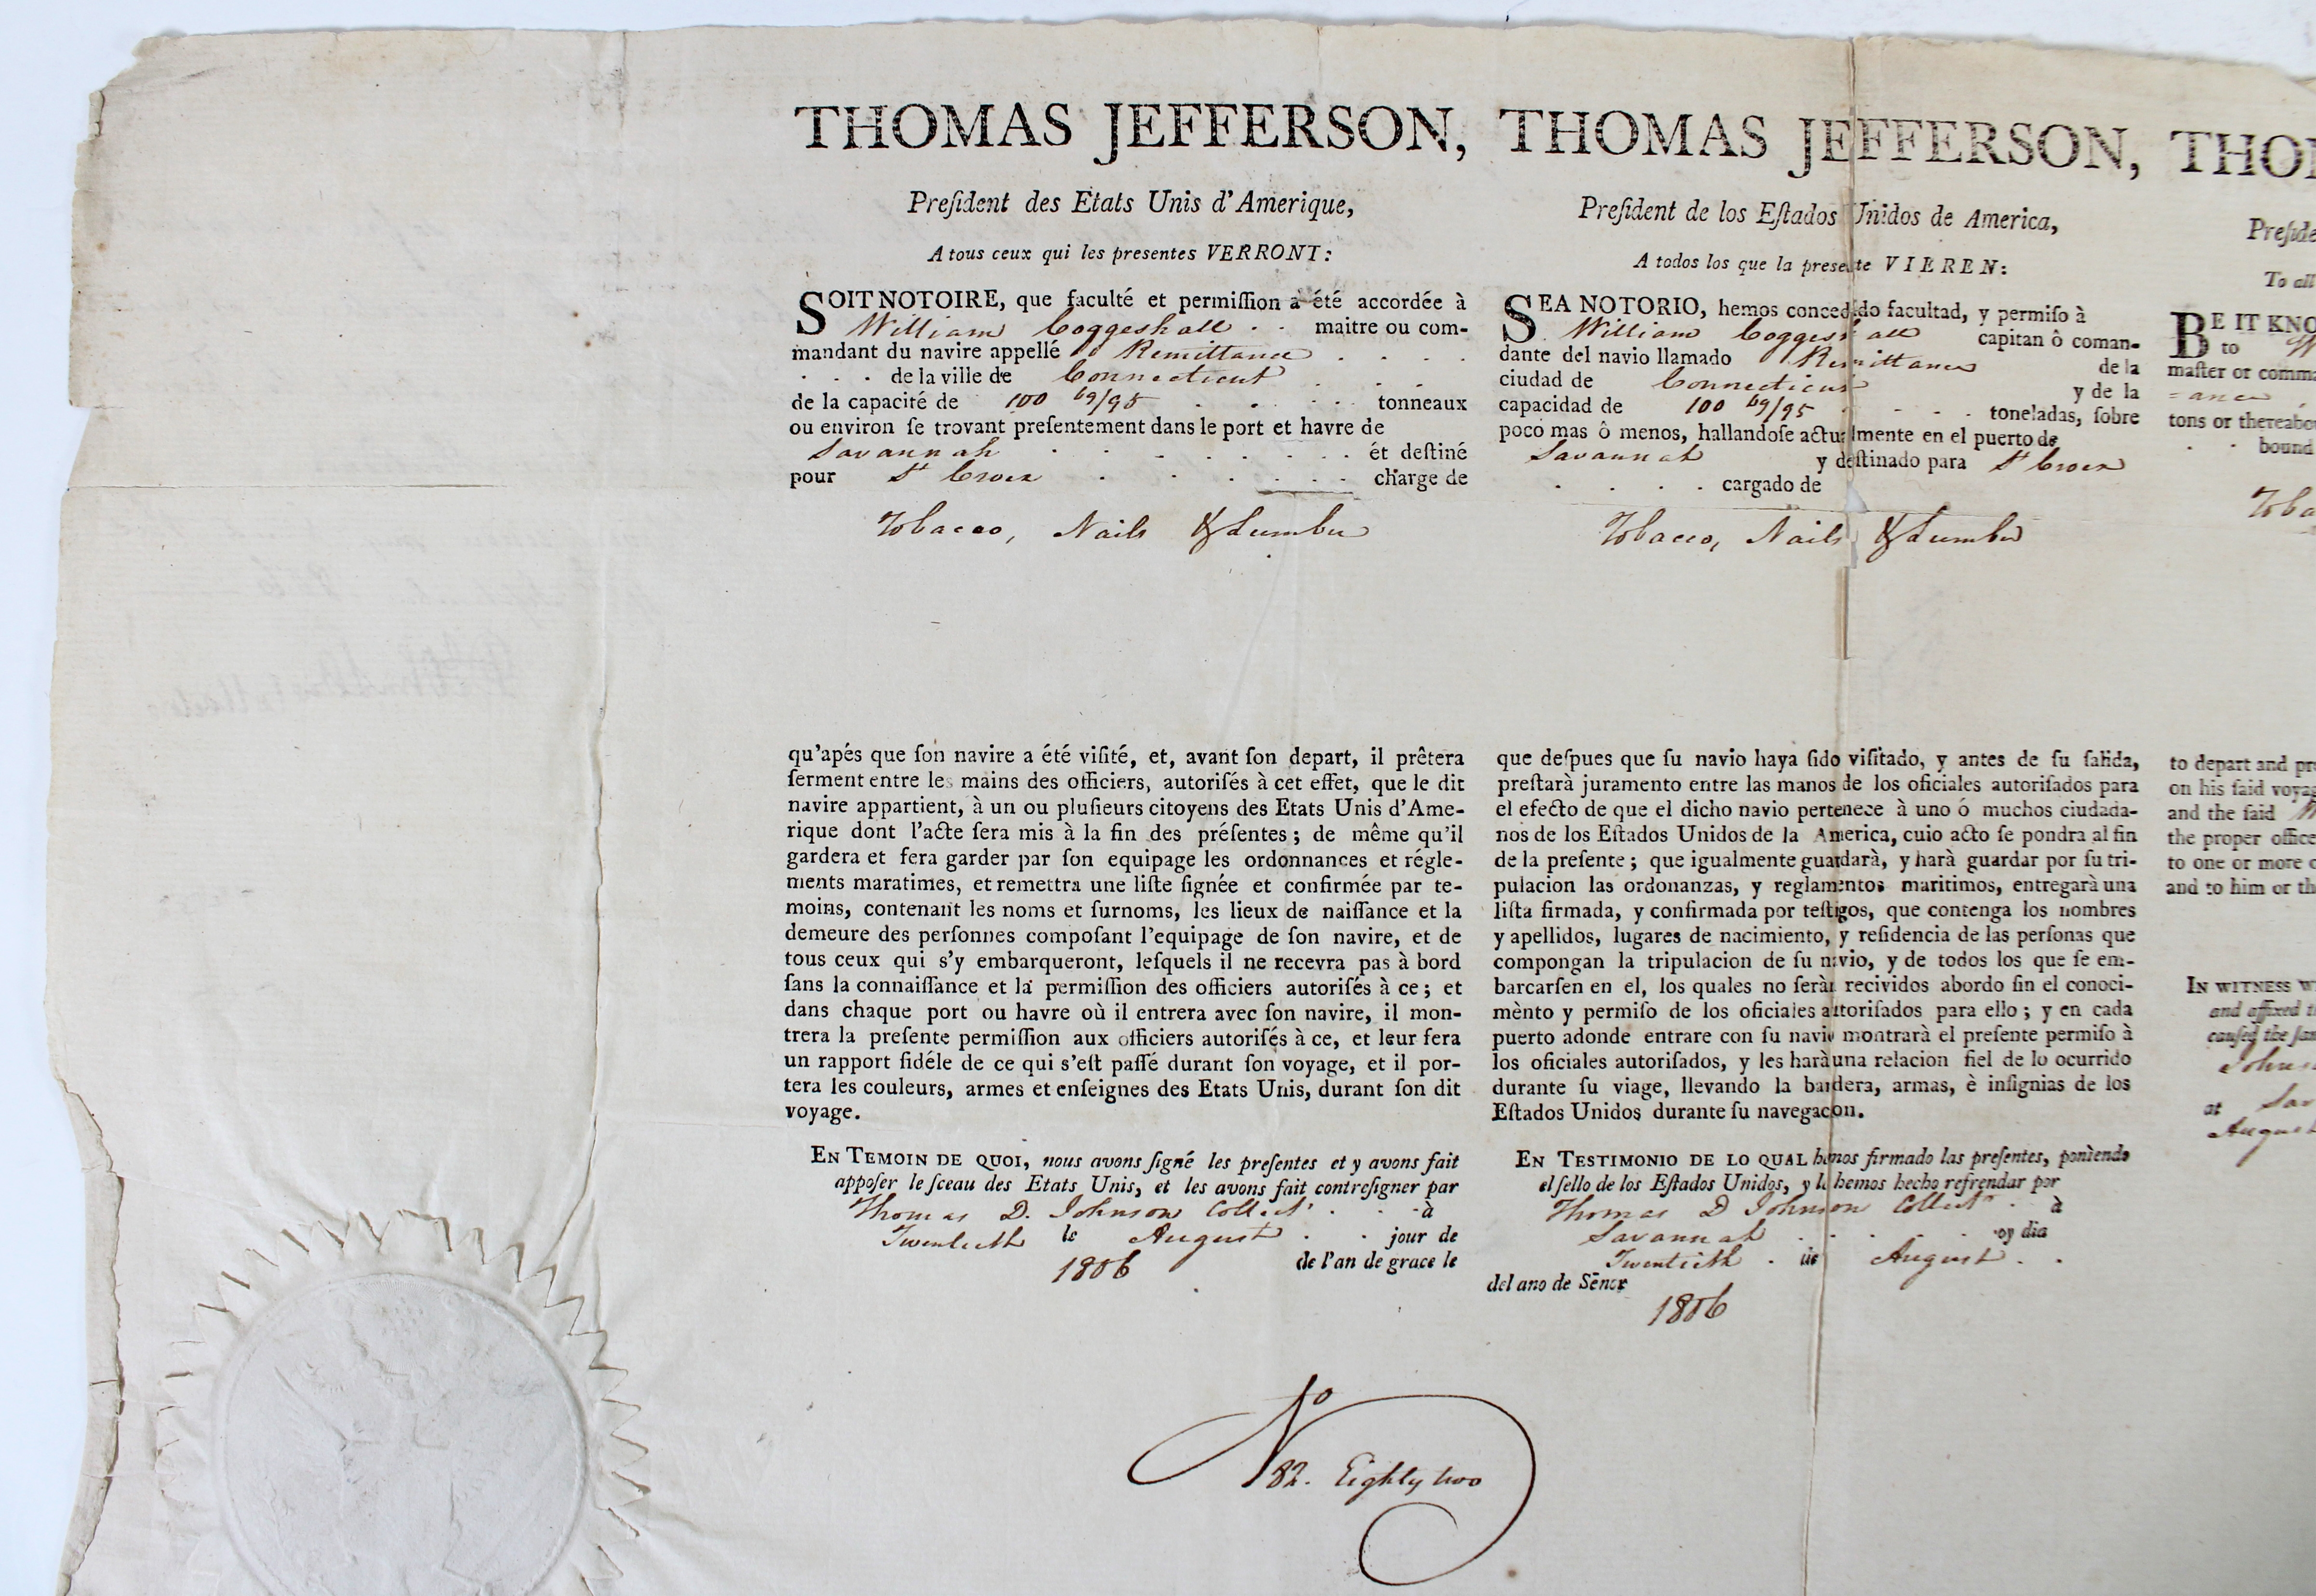 THOMAS JEFFERSON,
Preſident des Etats Unis d'Amerique,
A tous ceux qui les presentes VERRONT:
SOIT NOTOIRE, que faculté et permiſſion a été accordée à
William Coggeshall . . maitre ou com-
mandant du navire appellé Remittance . . . .
. . . de la ville de Connecticut . . .
de la capacité de 100 69/95 . . . . tonneaux
ou environ ſe trovant preſentement dans le port et havre de
Savannah . . . . . . . ét deſtiné
pour St Croix . . . . . . charge de
Tobacco, Nails & Lumber
qu'apés que ſon navire a été viſité, et, avant ſon depart, il prêtera
ſerment entre les mains des officiers, autoriſés à cet effet, que le dit
navire appartient, à un ou pluſieurs citoyens des Etats Unis d'Ame-
rique dont l'acte ſera mis à la fin des préſentes; de même qu'il
gardera et fera garder par ſon equipage les ordonnances et régle-
ments maratimes, et remettra une liſte ſignée et confirmée par te-
moins, contenant les noms et ſurnoms, les lieux de naiſſance et la
demeure des perſonnes compoſant l'equipage de ſon navire, et de
tous ceux qui s'y embarqueront, leſquels il ne recevra pas à bord
ſans la connaiſſance et la permiſſion des officiers autoriſés à ce; et
dans chaque port ou havre où il entrera avec ſon navire, il mon-
trera la preſente permiſſion aux officiers autoriſés à ce, et leur fera
un rapport fidéle de ce qui s'eſt paſſé durant ſon voyage, et il por-
tera les couleurs, armes et enſeignes des Etats Unis, durant ſon dit
voyage.
EN TEMOIN DE QUOI, nous avons ſigné les preſentes et y avons fait
appoſer le ſceau des Etats Unis, et les avons fait contreſigner par
Thomas D. Johnson Collectr . . à
Twentieth le August . . jour de
1806 de l'an de grace le
THOMAS JEFFERSON,
Preſident de los Eſtados Unidos de America,
A todos los que la presente VIEREN:
SEA NOTORIO, hemos concedido facultad, y permiſo à
William Coggeshall capitan ô coman-
dante del navio llamado Remittance de la
ciudad de Connecticut y de la
capacidad de 100 69/95 . . . . toneladas, ſobre
poco mas ô menos, hallandoſe actualmente en el puerto de
Savannah y deſtinado para St Croix
. . . . cargado de
Tobacco, Nails & Lumber
que deſpues que ſu navio haya ſido viſitado, y antes de ſu ſalida,
preſtarà juramento entre las manos de los oficiales autoriſados para
el efecto de que el dicho navio pertenece à uno ó muchos ciudada-
nos de los Eſtados Unidos de la America, cuio acto ſe pondra al fin
de la preſente; que igualmente guardarà, y harà guardar por ſu tri-
pulacion las ordonanzas, y reglamentos maritimos, entregarà una
liſta firmada, y confirmada por teſtigos, que contenga los nombres
y apellidos, lugares de nacimiento, y reſidencia de las perſonas que
compongan la tripulacion de ſu navio, y de todos los que ſe em-
barcarſen en el, los quales no ſeràn recividos abordo ſin el conoci-
mènto y permiſo de los oficiales autoriſados para ello; y en cada
puerto adonde entrare con ſu navio montrarà el preſente permiſo à
los oficiales autoriſados, y les harà una relacion fiel de lo ocurrido
durante ſu viage, llevando la bandera, armas, è inſignias de los
Eſtados Unidos durante ſu navegacon.
EN TESTIMONIO DE LO QUAL hemos firmado las preſentes, poniendo
el ſello de los Eſtados Unidos, y le hemos hecho refrendar por
Thomas D Johnson Collectr . à
Savannah . . . . . oy dia
Twentieth . de August . .
del ano de Sēnor
1806
THO
Preſide
To all
BE IT KNO
to W
maſter or comma
=ance,
tons or thereabo
. . bound
Toba
to depart and pr
on his ſaid voyag
and the ſaid
the proper office
to one or more c
and to him or th
IN WITNESS W
and affixed t
cauſed the ſam
Johns
at Sav
August
No 82. Eighty two